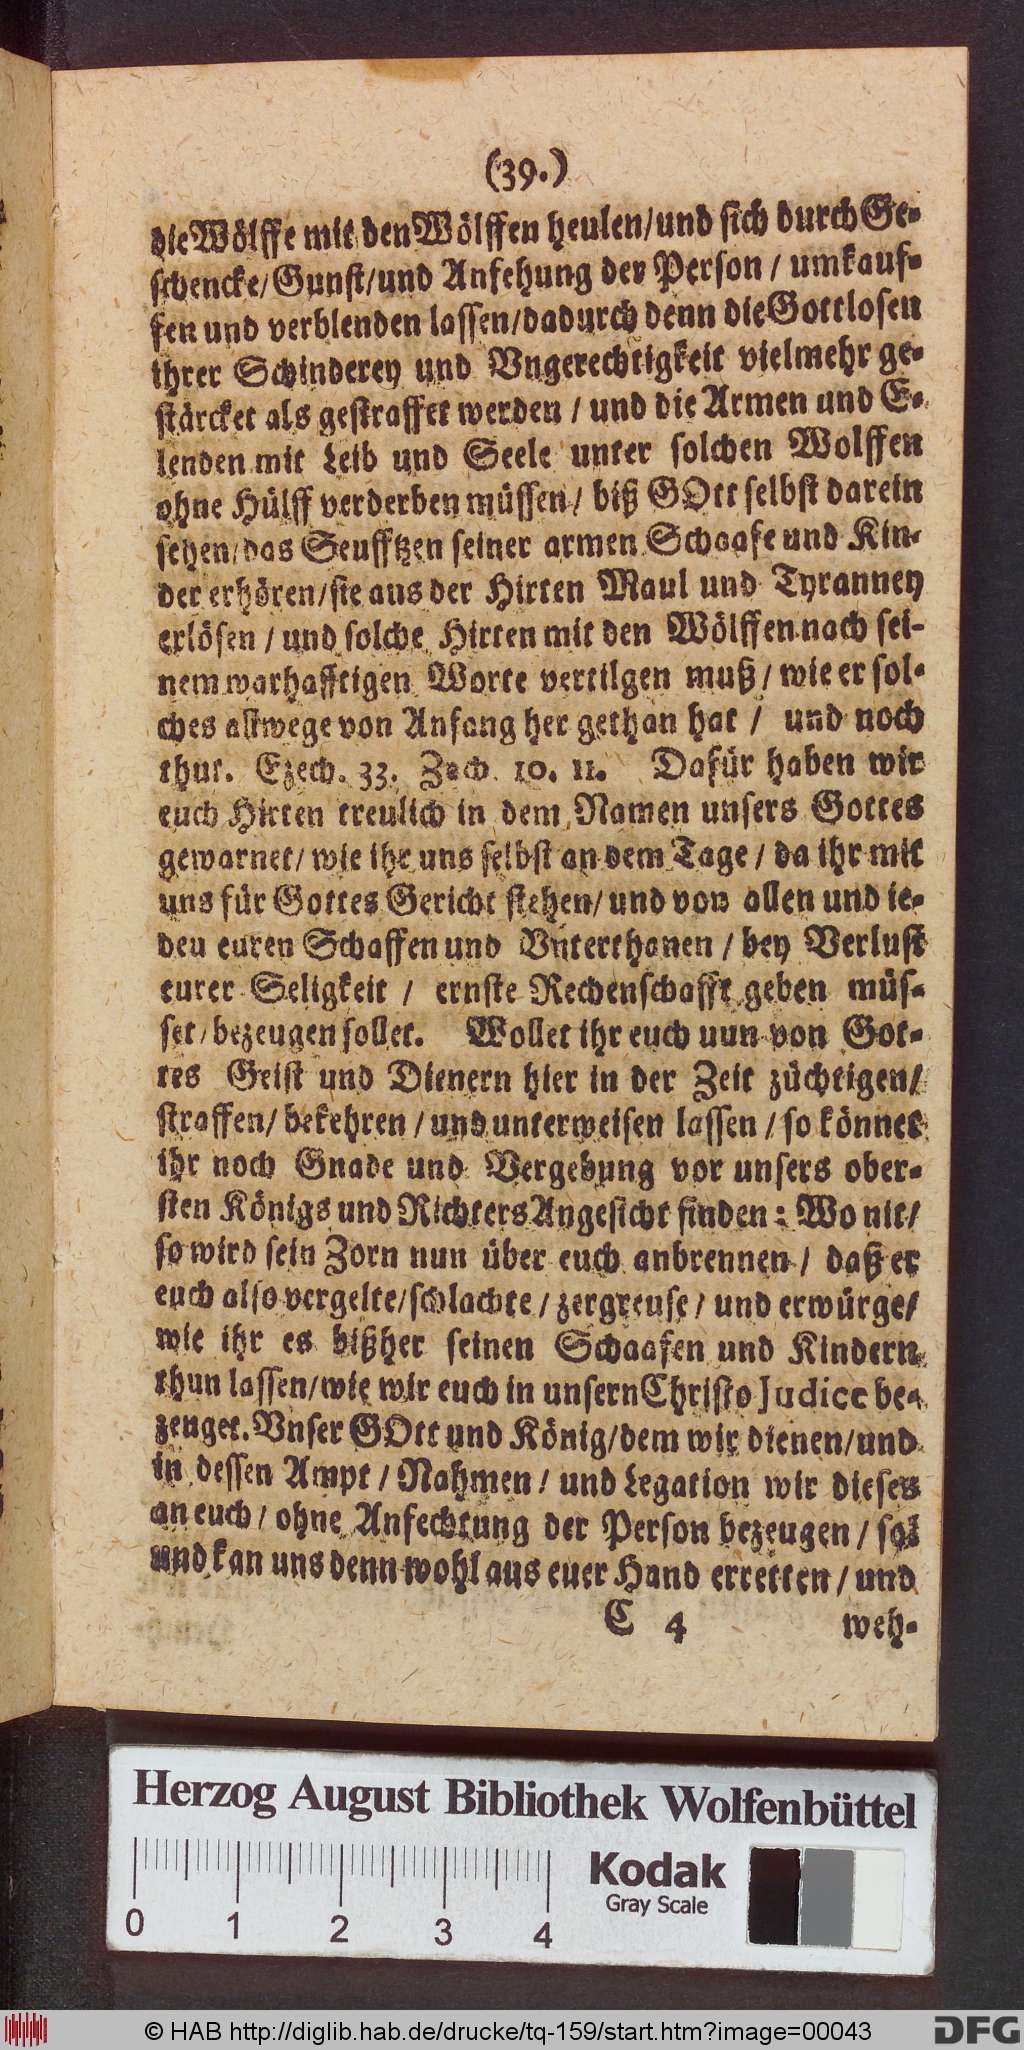 (39.)
die Wölffe mit den Wölffen heulen/und sich durch Ge-
schencke/Gunst/und Ansehung der Person / umkauf-
fen und verblenden lassen/dadurch denn die Gottlosen
ihrer Schinderey und Vngerechtigkeit vielmehr ge-
stärcket als gestraffet werden / und die Armen und E-
lenden mit Leib und Seele unter solchen Wolffen
ohne Hülff verderben müssen/ biß GOtt selbst darein
sehen/das Seufftzen seiner armen Schaafe und Kin-
der erhören/sie aus der Hirten Maul und Tyranney
erlösen / und solche Hirten mit den Wölffen nach sei-
nem warhafftigen Worte vertilgen muß / wie er sol-
ches allwege von Anfang her gethan hat / und noch
thut. Ezech. 33. Zach. 10. 11. Dafür haben wir
euch Hirten treulich in dem Namen unsers Gottes
gewarnet/ wie ihr uns selbst an dem Tage / da ihr mit
uns für Gottes Gericht stehen/ und von allen und ie-
den euren Schaffen und Vnterthanen / bey Verlust
eurer Seligkeit / ernste Rechenschafft geben müs-
set/bezeugen sollet. Wollet ihr euch uun von Got-
tes Geist und Dienern hier in der Zeit züchtigen/
straffen/ bekehren / und unterweisen lassen / so könnet
ihr noch Gnade und Vergebung vor unsers ober-
sten Königs und Richters Angesicht finden : Wo nit/
so wird sein Zorn nun über euch anbrennen / daß er
euch also vergelte/schlachte / zergreuse / und erwürge/
wie ihr es bißher seinen Schaafen und Kindern
thun lassen/wie wir euch in unsern Christo Judice be-
zeuget. Vnser GOtt und König/dem wir dienen/und
in dessen Ampt / Nahmen / und Legation wir dieses
an euch / ohne Anfechtung der Person bezeugen / sol
und kan uns denn wohl aus euer Hand erretten / und
C 4 weh-
Herzog August Bibliothek Wolfenbüttel
0 1 2 3 4
Kodak
Gray Scale
© HAB http://diglib.hab.de/drucke/tq-159/start.htm?image=00043
DFG